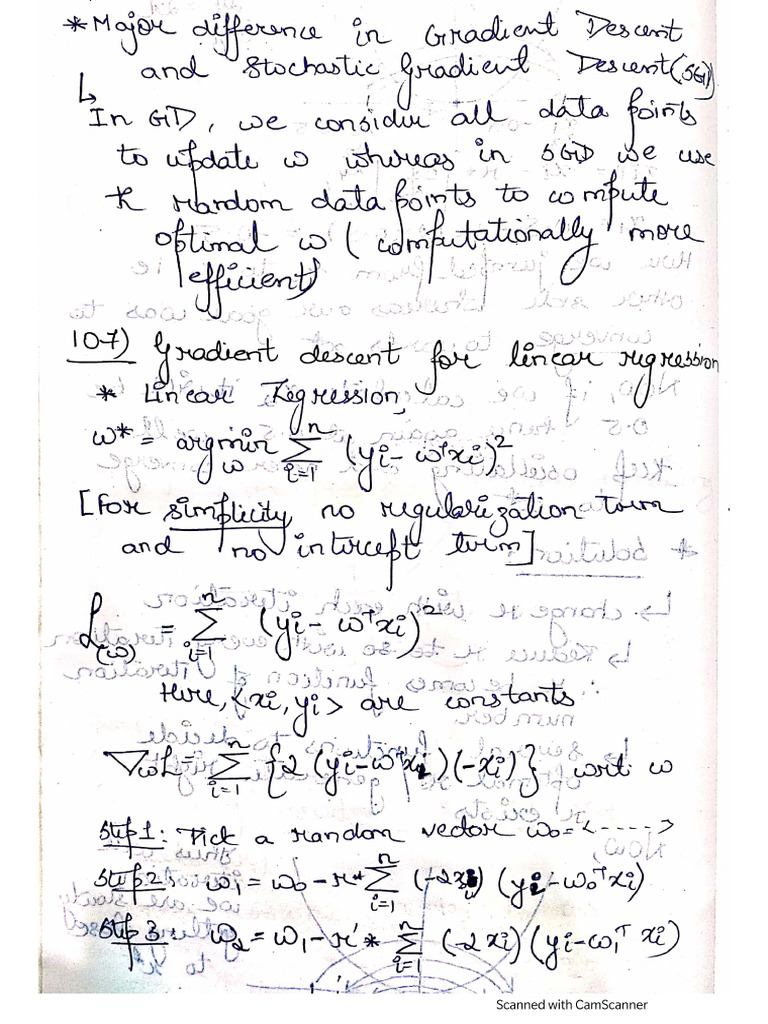 * Major difference in Gradient Descent
and Stochastic Gradient Descent (SGD)
↳ In GD, we consider all data points
to update w whereas in SGD we use
K random data points to compute
optimal w (computationally more
efficient)
10.7) Gradient descent for linear regression
* Linear Regression,
w* = argmin_w Σ_{i=1}^{n} (yi - wᵀxi)²
[For simplicity no regularization term
and no intercept term]
L(w) = Σ_{i=1}^{n} (yi - wᵀxi)²
Here, <xi, yi> are constants
∇wL = Σ_{i=1}^{n} {2 (yi - wᵀxi)(-xi)} wrt w
Step 1: Pick a random vector w₀ = <----->
Step 2: w₁ = w₀ - r * Σ_{i=1}^{n} (-2xi) (yi - w₀ᵀxi)
Step 3: w₂ = w₁ - r' * Σ_{i=1}^{n} (-2xi) (yi - w₁ᵀ xi)
Scanned with CamScanner